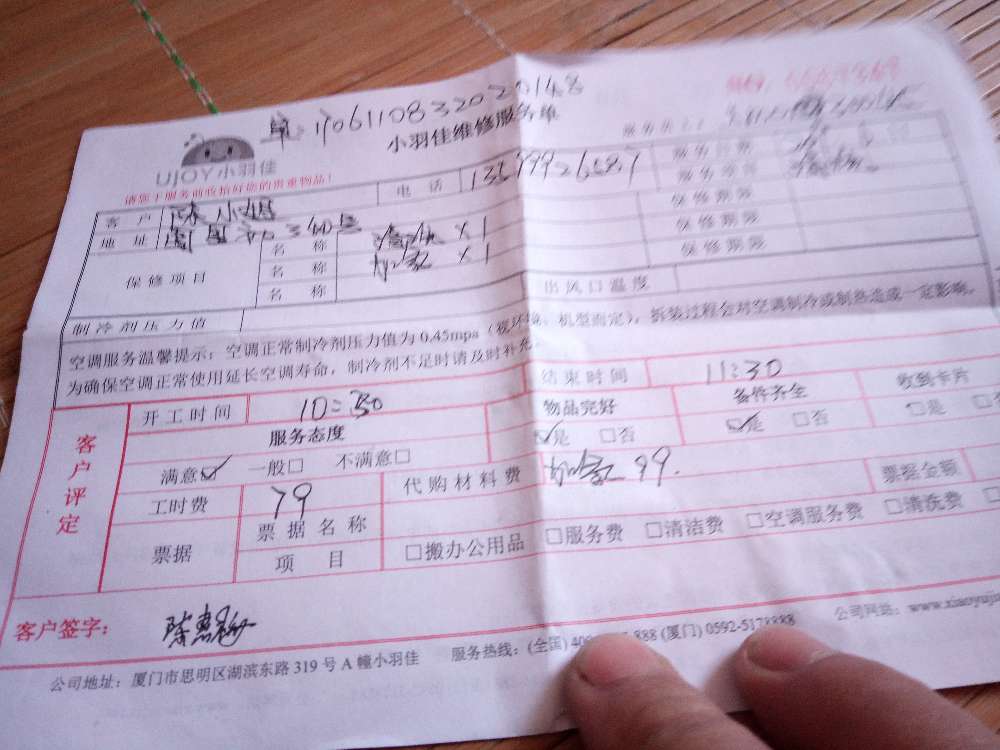 单:1706110832020148
小羽佳维修服务单
UJOY小羽佳
请您于服务前收拾好您的贵重物品!
客户 陈小姐 电话
地址
保修项目 名称 ×1 保修期限
名称 ×1 保修期限
名称 保修期限
制冷剂压力值 出风口温度
空调服务温馨提示:空调正常制冷剂压力值为0.45mpa(视环境、机型而定),拆装过程会对空调制冷或制热造成一定影响,
为确保空调正常使用延长空调寿命,制冷剂不足时请及时补充
客户评定
开工时间 10:30 结束时间 11:30
服务态度 物品完好 备件齐全 收到卡片
满意☑ 一般□ 不满意□ ☑是 □否 ☑是 □否 □是
工时费 79 代购材料费 加氟 99. 票据金额
票据 票据名称 □搬办公用品 □服务费 □清洁费 □空调服务费 □清洗费
项目
客户签字:
公司地址:厦门市思明区湖滨东路319号A幢小羽佳 服务热线:(全国) 888 (厦门) 0592-5178888 公司网络: